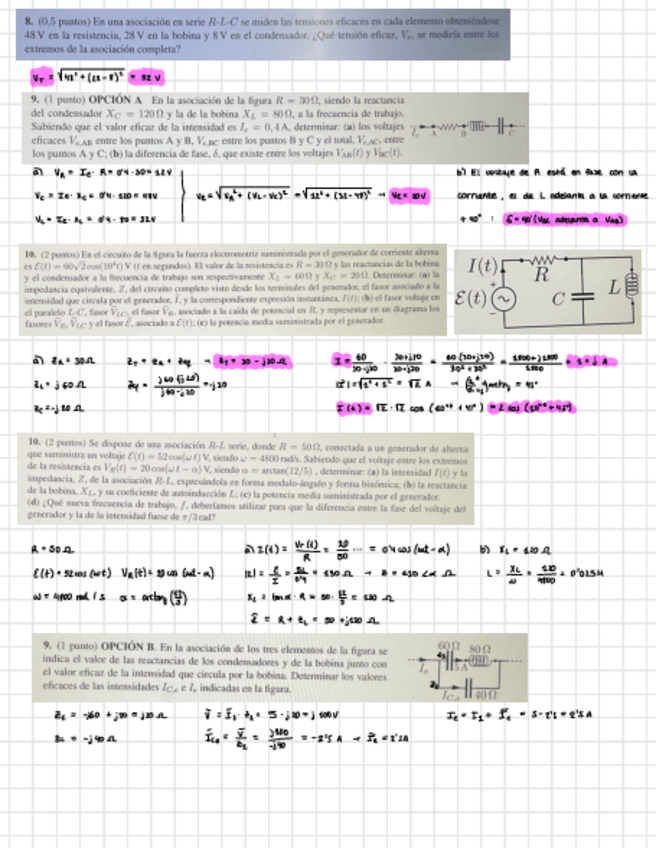 8. (0,5 puntos) En una asociación en serie R-L-C se miden las tensiones eficaces en cada elemento obteniéndose
48 V en la resistencia, 28 V en la bobina y 8 V en el condensador. ¿Qué tensión eficaz, Ve, se mediría entre los
extremos de la asociación completa?
VT = √(48² + (28 - 8)²) = 52 V
9. (1 punto) OPCIÓN A En la asociación de la figura R = 30 Ω, siendo la reactancia
del condensador XC = 120 Ω y la de la bobina XL = 80 Ω, a la frecuencia de trabajo.
Sabiendo que el valor eficaz de la intensidad es Ie = 0,4 A, determinar: (a) los voltajes
eficaces Ve,AB entre los puntos A y B, Ve,BC entre los puntos B y C y el total, Ve,AC, entre
los puntos A y C; (b) la diferencia de fase, δ, que existe entre los voltajes VAB(t) y VBC(t).
Ie A B C
a) VR = Ie · R = 0'4 · 30 = 12 V
VC = Ie · XC = 0'4 · 120 = 48 V
VL = Ie · XL = 0'4 · 80 = 32 V
Ve = √(VR² + (VL - VC)²) = √(12² + (32 - 48)²) → Ve = 20 V
b) El voltaje de R está en fase con la
corriente, el de L adelanta a la corriente
+ 90° :
10. (2 puntos) En el circuito de la figura la fuerza electromotriz suministrada por el generador de corriente alterna
es Ɛ(t) = 60√2 cos(10⁴t) V (t en segundos). El valor de la resistencia es R = 30 Ω y las reactancias de la bobina
y el condensador a la frecuencia de trabajo son respectivamente XL = 60 Ω y XC = 20 Ω. Determinar: (a) la
impedancia equivalente, Z, del circuito completo visto desde los terminales del generador, el fasor asociado a la
intensidad que circula por el generador, Ĩ, y la correspondiente expresión instantánea, I(t); (b) el fasor voltaje en
el paralelo L-C, fasor ṼLC, el fasor ṼR, asociado a la caída de potencial en R, y representar en un diagrama los
fasores ṼR, ṼLC y el fasor Ɛ̃, asociado a Ɛ(t); (c) la potencia media suministrada por el generador.
I(t)
R
Ɛ(t) C L
a) ZR = 30 Ω
ZL = j 60 Ω
ZC = -j 20 Ω
→ ZT = 30 - j30 Ω
I = 60 / (30 - j30) · (30 + j30) / (30 + j30) = 60 · (30 + j30) / (30² + 30²) = = 1 + j A
|I| = √(1² + 1²) = √2 A
I(t) = √2 · √2 cos (10⁴t + 45°) = 2 cos (10⁴t + 45°)
10. (2 puntos) Se dispone de una asociación R-L serie, donde R = 50 Ω, conectada a un generador de alterna
que suministra un voltaje Ɛ(t) = 52 cos(ωt) V, siendo ω = 4800 rad/s. Sabiendo que el voltaje entre los extremos
de la resistencia es VR(t) = 20 cos(ωt − α) V, siendo α = arctan(12/5) , determinar: (a) la intensidad I(t) y la
impedancia, Z, de la asociación R-L, expresándola en forma módulo-ángulo y forma binómica; (b) la reactancia
de la bobina, XL, y su coeficiente de autoinducción L; (c) la potencia media suministrada por el generador.
(d) ¿Qué nueva frecuencia de trabajo, f, deberíamos utilizar para que la diferencia entre la fase del voltaje del
generador y la de la intensidad fuese de π/3 rad?
R = 50 Ω
Ɛ(t) = 52 cos (ωt) VR(t) = 20 cos (ωt - α)
ω = 4800 rad / s
a) I(t) = Vr(t) / R = 20 / 50 ... = 0'4 cos (ωt - α)
XL = tan α · R = 50 · 12/5 = 120 Ω
Z̃ = R + ZL = 50 + j120 Ω
b) XL = 120 Ω
L = XL / ω = 120 / 4800 = 0'025 H
9. (1 punto) OPCIÓN B. En la asociación de los tres elementos de la figura se
indica el valor de las reactancias de los condensadores y de la bobina junto con
el valor eficaz de la intensidad que circula por la bobina. Determinar los valores
eficaces de las intensidades IC,e e Ie indicadas en la figura.
60 Ω 80 Ω
Ie 5 A
IC,e 40 Ω
Z1 = -j60 + j80 = j20 Ω
Z2 = -j 40 Ω
Ṽ = Ĩ1 · Z1 = 5 · j20 = j 100 V
= -2'5 A
Ie = I1 + Ic = 5 - 2'5 = 2'5 A